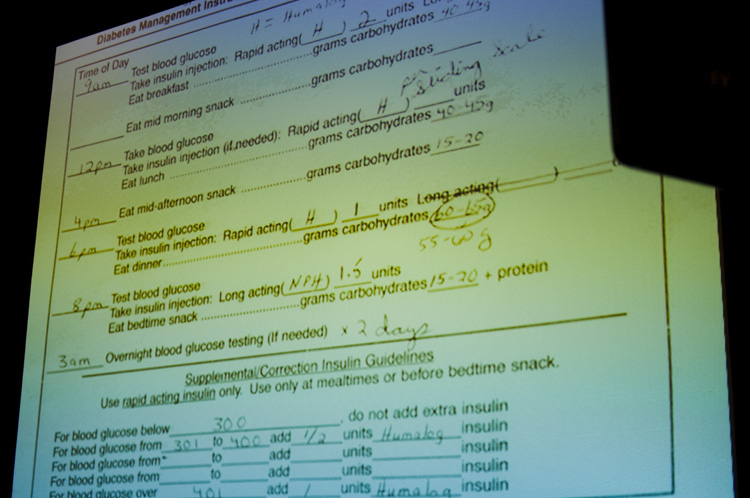 Diabetes Management
H = Humalog
Time of Day
9am Test blood glucose
Take insulin injection: Rapid acting( H ) 2 units
Eat breakfast ........ grams carbohydrates 40-45g
Eat mid morning snack ........ grams carbohydrates
Sliding Scale
12pm Take blood glucose
Take insulin injection (if needed): Rapid acting( H ) units
Eat lunch ........ grams carbohydrates 40-45g
4pm Eat mid-afternoon snack ........ grams carbohydrates 15-20
6pm Test blood glucose
Take insulin injection: Rapid acting( H ) 1 units Long acting( )
Eat dinner ........ grams carbohydrates 60-65g
55-60g
8pm Test blood glucose
Take insulin injection: Long acting( NPH ) 1.5 units
Eat bedtime snack ........ grams carbohydrates 15-20 + protein
3am Overnight blood glucose testing (If needed) x 2 days
Supplemental/Correction Insulin Guidelines
Use rapid acting insulin only. Use only at mealtimes or before bedtime snack.
For blood glucose below 300, do not add extra insulin
For blood glucose from 301 to 400 add 1/2 units Humalog insulin
For blood glucose from to add units insulin
For blood glucose from to add units insulin
For blood glucose over 401 add 1 units Humalog insulin